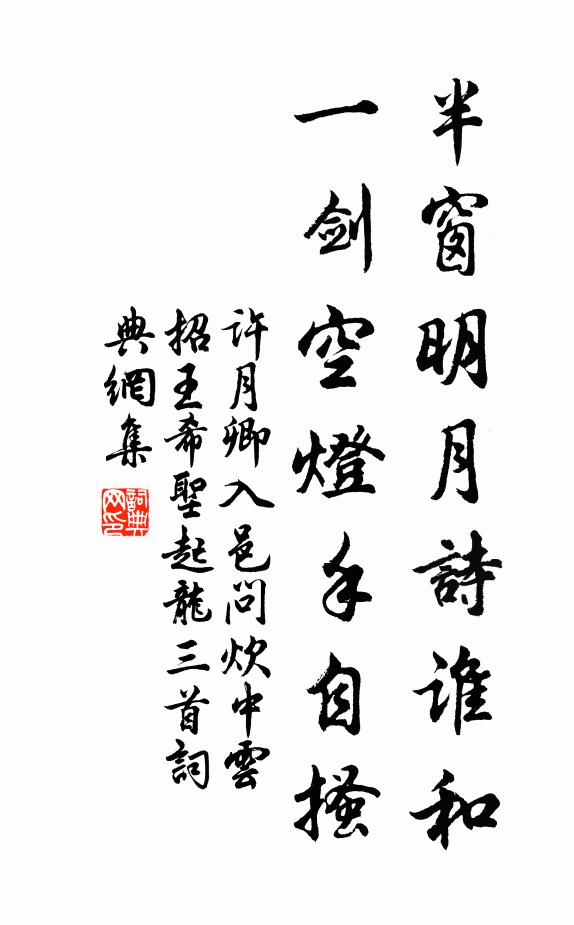 半窗明月詩誰和
一劍空燈手自搔
許月卿入邑問炊中雲
招王希聖起龍三首詞
典網集
詞典
网印